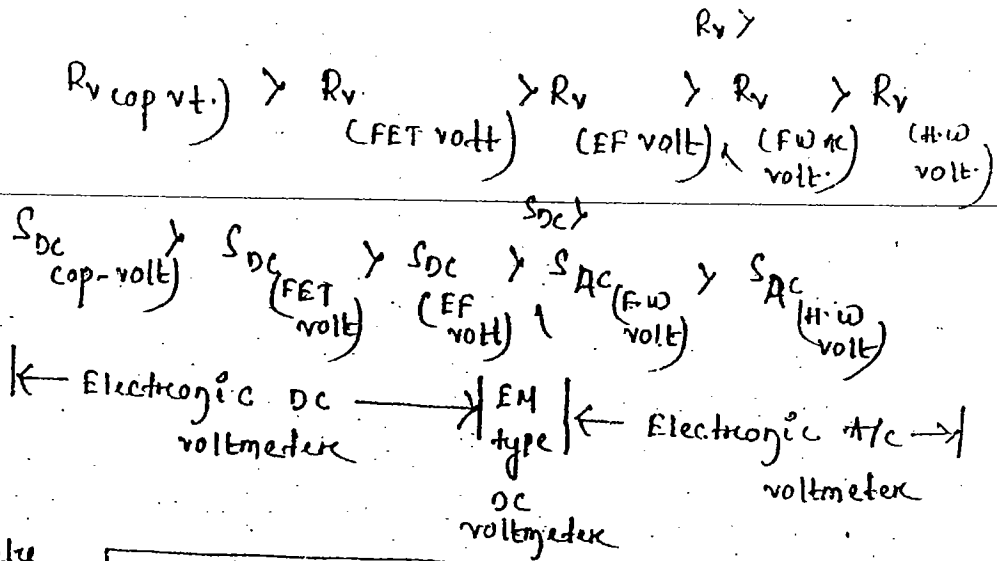 Rv >
Rv cop vt.) > Rv (FET volt) > Rv (EF volt), > Rv (FW AC volt.) > Rv (H.W volt.)
SDC >
SDC cop-volt) > SDC (FET volt) > SDC (EF volt) > SAC (F.W volt) > SAC (H.W volt)
|← Electronic DC voltmeter →| EM type DC voltmeter |← Electronic A/c voltmeter →|